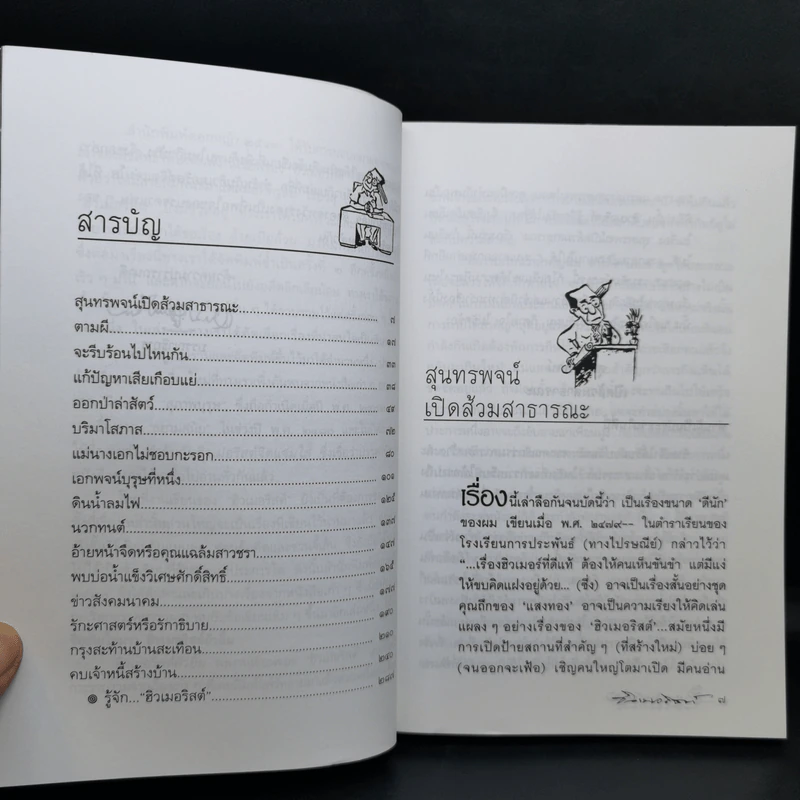 สารบัญ
สุนทรพจน์เปิดส้วมสาธารณะ.......... ๗
ตามผี.......... ๑๗
จะรีบร้อนไปไหนกัน.......... ๓๓
แก้ปัญหาเสียเกือบแย่.......... ๓๘
ออกป่าล่าสัตว์.......... ๔๘
บริมาโสภาส.......... ๗๒
แม่นางเอกไม่ชอบกะรอก.......... ๘๐
เอกพจน์บุรุษที่หนึ่ง.......... ๑๐๑
ดินน้ำลมไฟ.......... ๑๒๕
นวกทนต์.......... ๑๓๗
อ้ายหน้าจืดหรือคุณแฉล้มสาวชรา.......... ๑๔๗
พบบ่อน้ำแข็งวิเศษศักดิ์สิทธิ์.......... ๑๖๕
ข่าวสังคมนาคม.......... ๑๗๗
รักะศาสตร์หรือรักาธิบาย.......... ๑๙๐
กรุงสะท้านบ้านสะเทือน.......... ๒๑๐
คบเจ้าหนี้สร้างบ้าน.......... ๒๔๐
๏ รู้จัก..."ฮิวเมอริสต์"..........
สุนทรพจน์
เปิดส้วมสาธารณะ
เรื่อง นี้เล่าลือกันจนบัดนี้ว่า เป็นเรื่องขนาด 'ตีนัก'
ของผม เขียนเมื่อ พ.ศ. ๒๔๗๙-- ในตำราเรียนของ
โรงเรียนการประพันธ์ (ทางไปรษณีย์) กล่าวไว้ว่า
"...เรื่องฮิวเมอร์ที่ดีแท้ ต้องให้คนเห็นขันขำ แต่มีแง่
ให้ขบคิดแฝงอยู่ด้วย... (ซึ่ง) อาจเป็นเรื่องสั้นอย่างชุด
คุณถึกของ 'แสงทอง' อาจเป็นความเรียงให้คิดเล่น
แผลง ๆ อย่างเรื่องของ 'ฮิวเมอริสต์'...สมัยหนึ่งมี
การเปิดป้ายสถานที่สำคัญ ๆ (ที่สร้างใหม่) บ่อย ๆ
(จนออกจะเฟ้อ) เชิญคนใหญ่โตมาเปิด มีคนอ่าน
ฮิวเมอริสต์ ๗